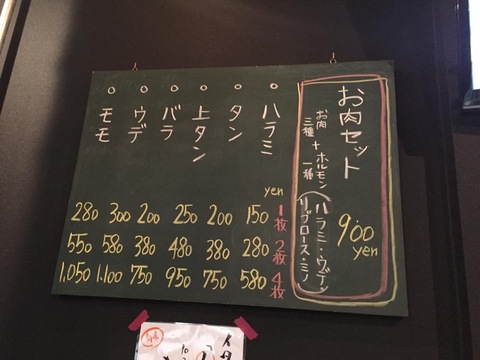 お肉セット
お肉三種 + ホルモン一種
(ハラミ・ウデ
リブロース・ミノ)
900 yen
yen
1枚 2枚 4枚
。ハラミ 150 280 580
。タン 200 380 750
。上タン 250 480 950
。バラ 200 380 750
。ウデ 300 580 1,100
。モモ 280 550 1,050